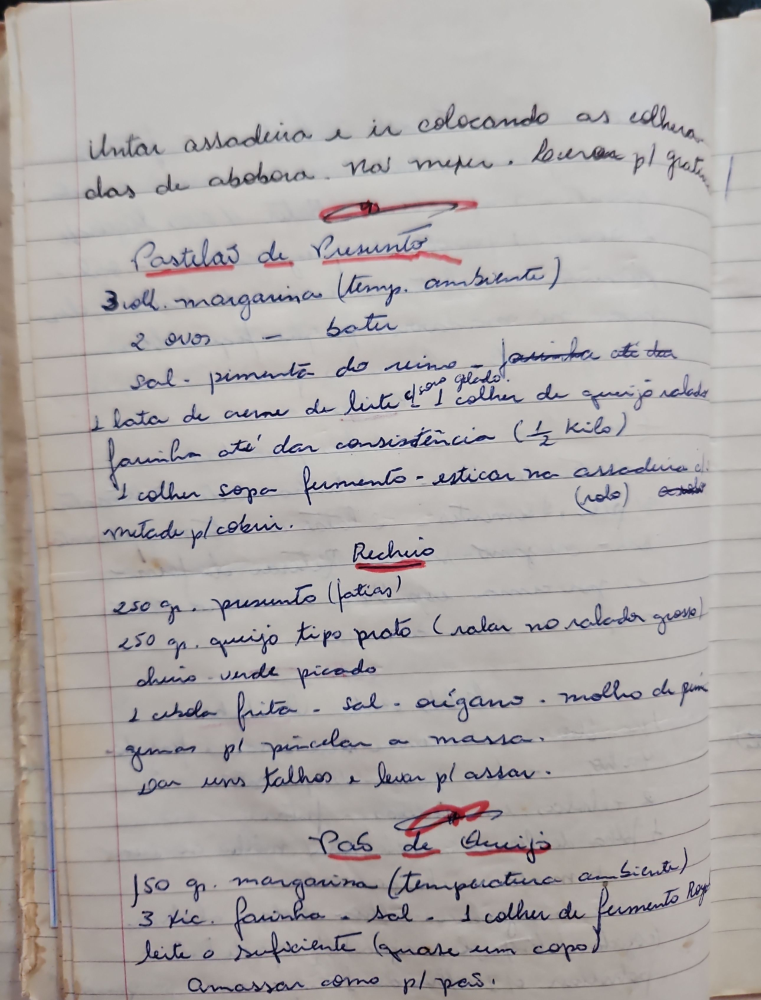 Untar assadeira e ir colocando as colhera
das de abobora. Não mexer. Levar p/ grati
Pastelão de Presunto
3 colh. margarina (temp. ambiente)
2 ovos - bater
sal - pimenta do reino - farinha até dar
1 lata de creme de leite c/ soro gelado. 1 colher de queijo ralado
farinha até dar consistência (1/2 kilo)
1 colher sopa fermento - esticar na assadeira c/
(rolo)
metade p/ cobrir.
Recheio
250 gr. presunto (fatias)
250 gr. queijo tipo prato (ralar no ralador grosso)
cheiro verde picado
1 cebola frita - sal - orégano - molho de pim
gemas p/ pincelar a massa.
Dar uns talhos e levar p/ assar.
Pão de Queijo
150 gr. margarina (temperatura ambiente)
3 xic. farinha - sal - 1 colher de fermento Roya
leite o suficiente (quase um copo)
amassar como p/ pão.